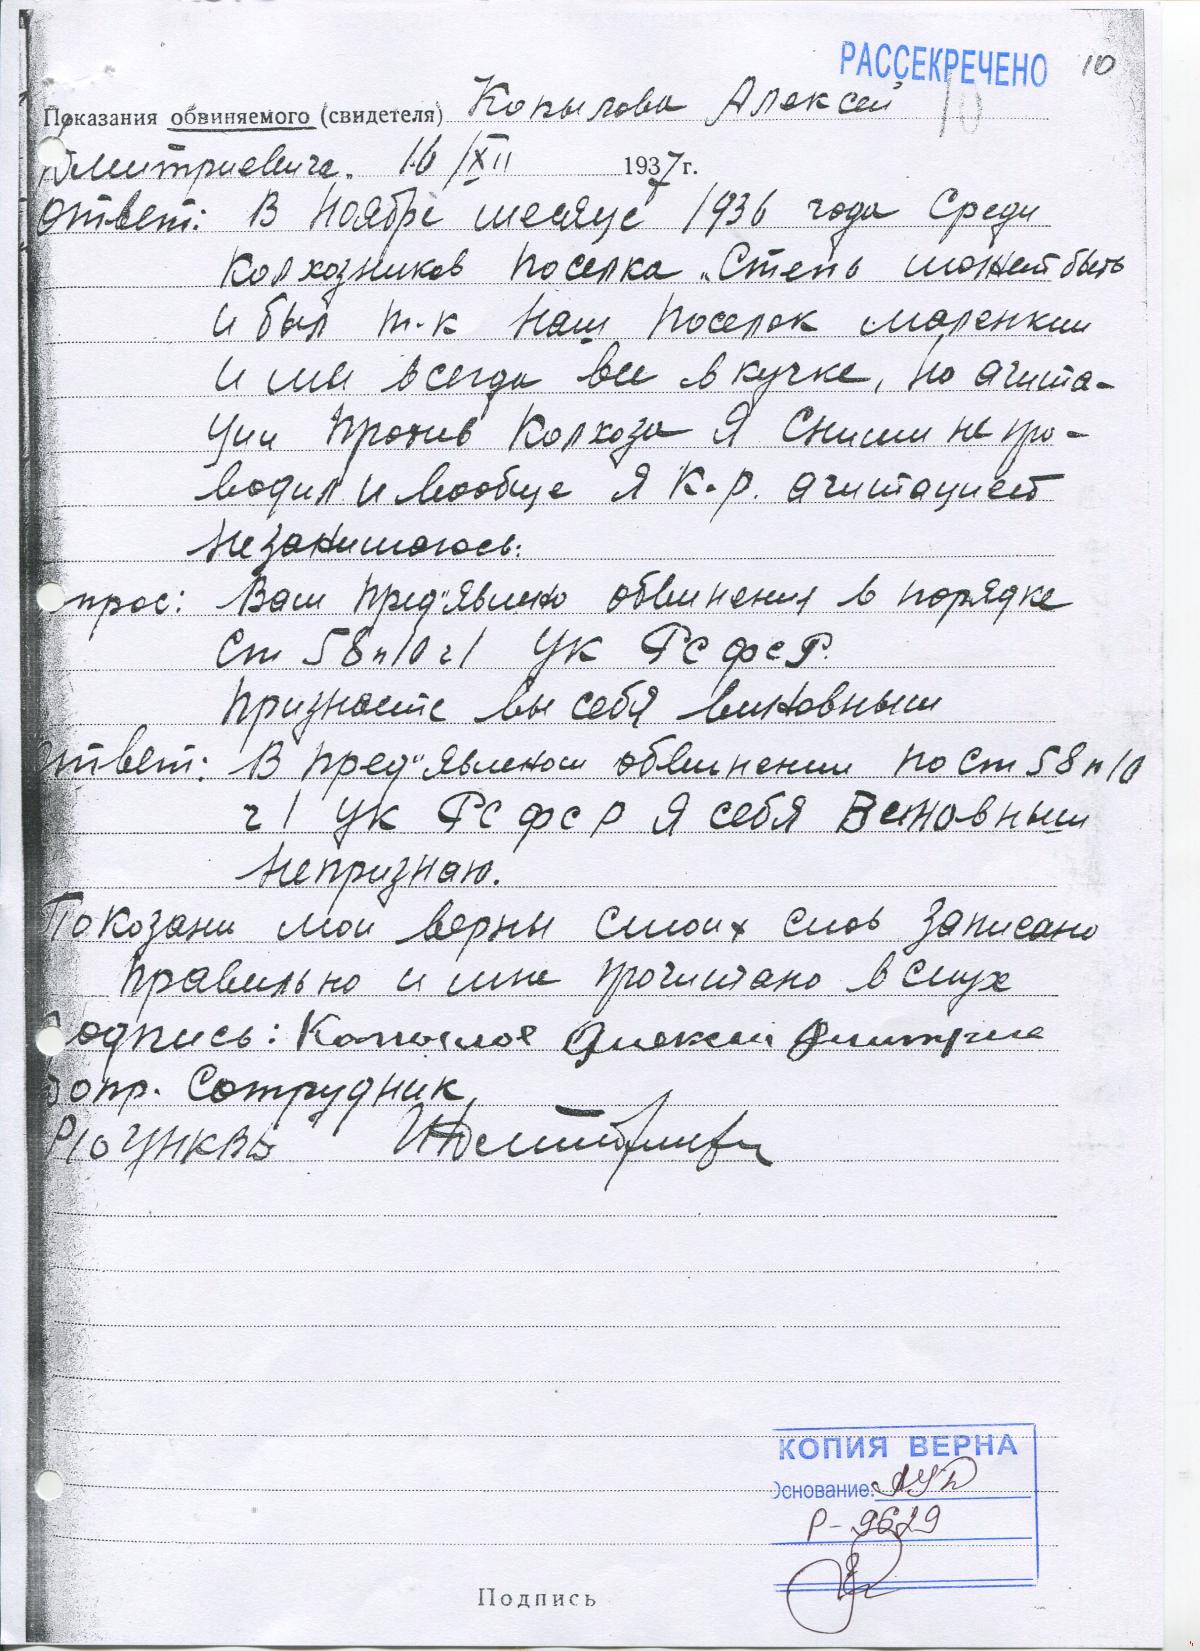 РАССЕКРЕЧЕНО 10
10
Показания обвиняемого (свидетеля) Копылова Алексей
Дмитриевича. 16/XII 1937 г.
Ответ: В Ноябре месяце 1936 года Среди
Колхозников поселка „Степь может быть
и был т-к наш поселок маленкии
и мы всегда все в кучке, но агита-
ции против Колхоза Я Сними не про-
водил и вообще я К.р. агитациеб
незанимаюсь.
прос: Вам пред"явлено обвинения в порядке
Ст 58 п 10 ч 1 УК РСФСР.
признаете вы себя виновным
Ответ: В пред"явленом обвинении по ст 58 п 10
ч 1 УК РСФСР Я себя Виновным
непризнаю.
Показани мои верны смоих слов записано
правильно и мне прочитано в слух
Подпись: Копылов Алексеи Дмитрие
Допр. Сотрудник
Р/о УНКВД
КОПИЯ ВЕРНА
Основание: АУД
Р-9629
Подпись